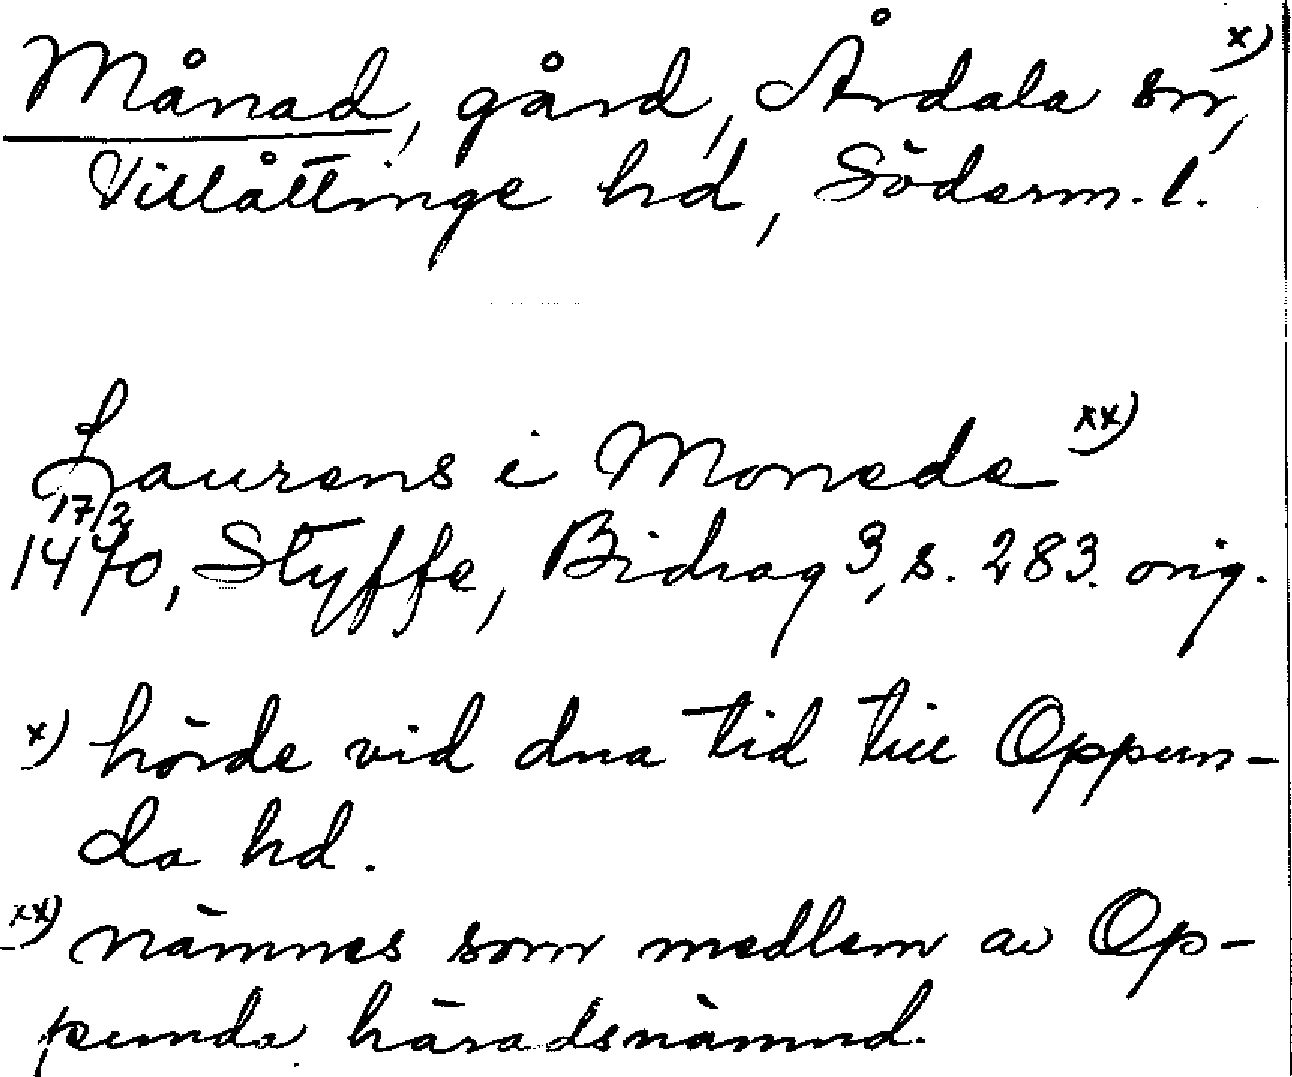 Månad, gård, Årdala sn, x)
Villåttinge hd, Söderm. l.
Laurens i Monede xx)
17/2
1470, Styffe, Bidrag 3, s. 283. orig.
x) hörde vid dna tid till Oppun-
da hd.
xx) nämnes som medlem av Op-
punda häradsnämnd.